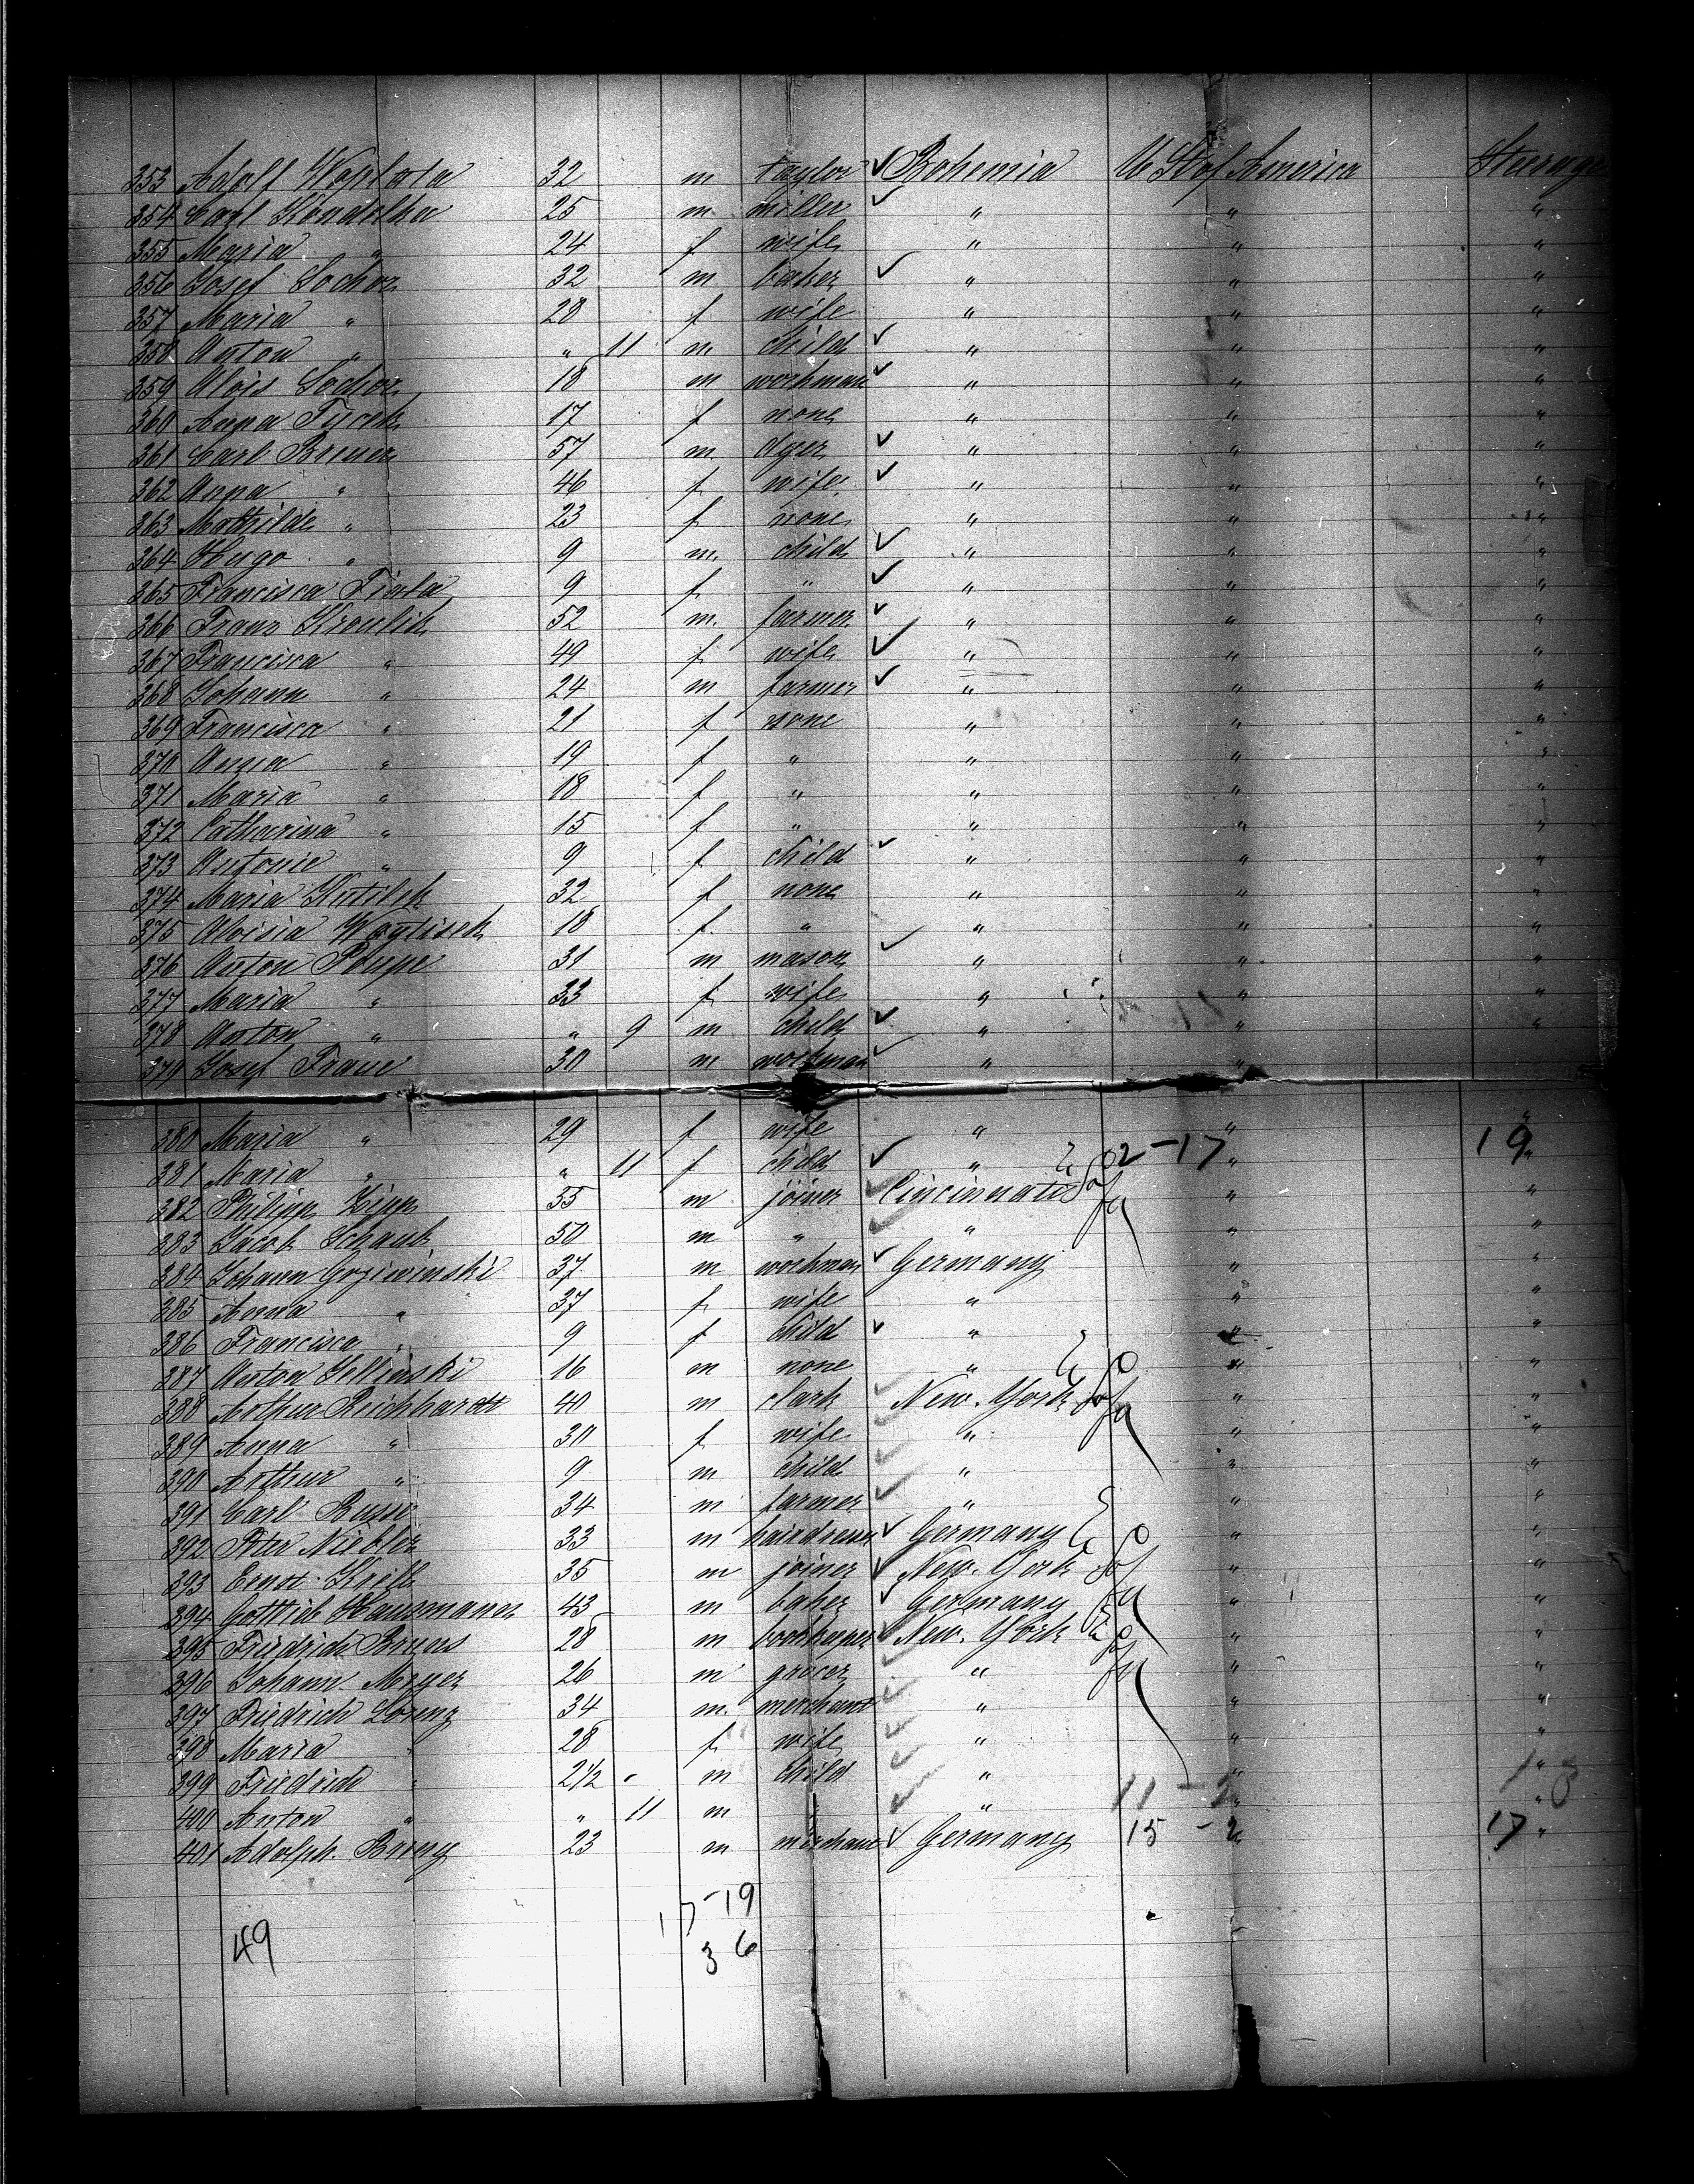 353 Adolf Woplata 32 m taylor Bohemia U St of America Steerage
354 Carl Kondelka 25 m miller " " "
355 Maria " 24 f wife " " "
356 Josef Sochor 32 m baker " " "
357 Maria " 28 f wife " " "
358 Anton " " 11 m child " " "
359 Alois Sochor 18 m workman " " "
360 Anna 17 f none " " "
361 Carl 57 m dyer " " "
362 Anna " 46 f wife " " "
363 Mathilde " 23 f none " " "
364 Hugo " 9 m child " " "
365 Francisca Fiala 9 f " " " "
366 Franz Kroulik 52 m farmer " " "
367 Francisca " 49 f wife " " "
368 Johann " 24 m farmer " " "
369 Francisca " 21 f none " " "
370 Anna " 19 f " " " "
371 Maria " 18 f " " " "
372 Catharina " 15 f " " " "
373 Antonie " 9 f child " " "
374 Maria Kutilek 32 f none " " "
375 Aloisia 18 f " " " "
376 Anton Poupe 31 m mason " " "
377 Maria " 33 f wife " " "
378 Anton " " 9 m child " " "
379 Josef Franc 30 m workman " " "
380 Maria " 29 f wife " " "
381 Maria " " 11 f child " 2-17 " 19 "
382 Philipp Zipp 55 m joiner Cincinnati " "
383 Jacob Schaub 50 m " " " "
384 Johann 37 m workman Germany " "
385 Anna " 37 f wife " " "
386 Francisca " 9 f child " " "
387 Anton 16 m none " " "
388 Arthur Reichhardt 40 m clark New-York " "
389 Anna " 30 f wife " " "
390 Arthur " 9 m child " " "
391 Carl Busse 34 m farmer " " "
392 Peter Niebler 33 m hairdresser Germany " "
393 Ernst 35 m joiner New-York " "
394 Gottlieb Hausmann 43 m baker Germany " "
395 Friedrich Bruns 28 m bookkeeper New-York " "
396 Johann Meyer 26 m grocer " " "
397 Friedrich Lorenz 34 m merchant " " "
398 Maria " 28 f wife " " "
399 Friedrich " 2½ m child " " "
400 Anton " " 11 m " 11 - " "
401 Adolph 23 m merchant Germany 15 - 2 17 "
17-19
49 36